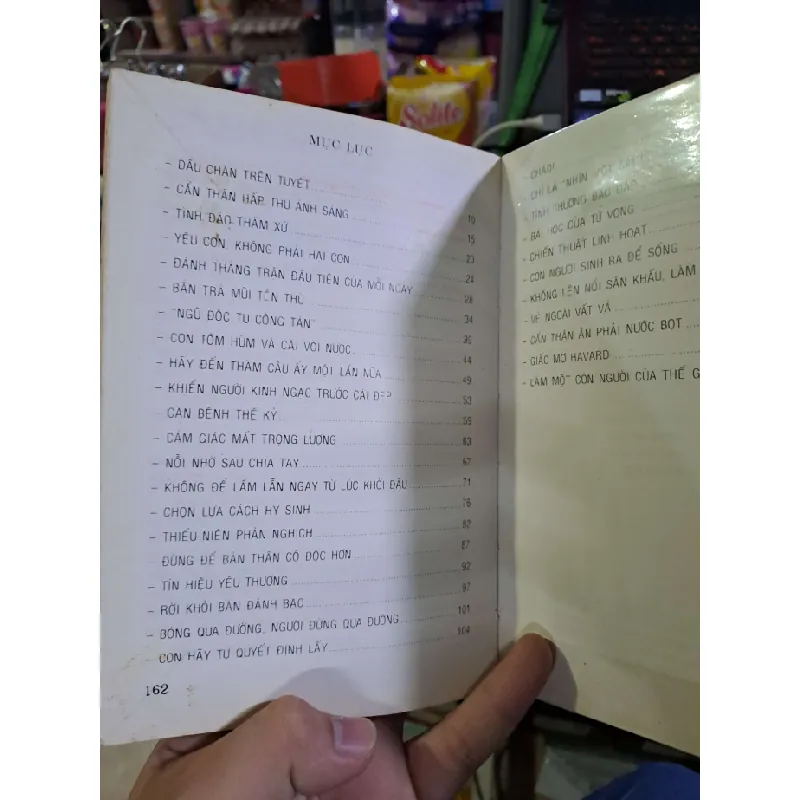 MỤC LỤC
- DẤU CHÂN TRÊN TUYẾT
- CẨN THẬN HẤP THU ÁNH SÁNG 10
- TÌNH ĐẦU THẦM XỨ 15
- YÊU CON, KHÔNG PHẢI HẠI CON 23
- ĐÁNH THẮNG TRẬN ĐẦU TIÊN CỦA MỖI NGÀY 24
- BẮN TRẢ MŨI TÊN THÙ 28
- "NGŨ ĐỘC TU CÔNG TÁN" 34
- CON TÔM HÙM VÀ CÁI VÒI NƯỚC 39
- HÃY ĐẾN THAM CẦU ẤY MỘT LẦN NỮA 44
- KHIẾN NGƯỜI KINH NGẠC TRƯỚC CÁI ĐẸP 49
- CĂN BỆNH THẾ KỶ 53
- CẢM GIÁC MẤT TRỌNG LƯỢNG 59
- NỖI NHỚ SAU CHIA TAY 63
- KHÔNG ĐỂ LẦM LẪN NGAY TỪ LÚC KHỞI ĐẦU 67
- CHỌN LỰA CÁCH HY SINH 71
- THIẾU NIÊN PHẢN NGHỊCH 76
ĐỪNG ĐỂ BẢN THÂN CÔ ĐỘC HƠN 82
- TÍN HIỆU YÊU THƯƠNG 87
- RỜI KHỎI BÀN ĐÁNH BẠC 92
- BÓNG QUA ĐƯỜNG, NGƯỜI ĐỪNG QUA ĐƯỜNG 97
CON HÃY TỰ QUYẾT ĐỊNH LẤY 101
104
162
- CHAOI
CHỈ LÀ "NHÌN MỘT CÁI
- TÌNH THƯƠNG BAO
- BÀI HỌC CỦA TỬ VONG
- CHIẾN THUẬT LINH HOẠT
- CON NGƯỜI SINH RA ĐỂ SỐNG
- KHÔNG LÊN NỔI SÂN KHẤU, LÀM
- VẺ NGOÀI VẤT VẢ
- CẨN THẬN ĂN PHẢI NƯỚC BỌT
- GIẤC MƠ HAVARD
- LÀM MỘT CON NGƯỜI CỦA THẾ G
Solite